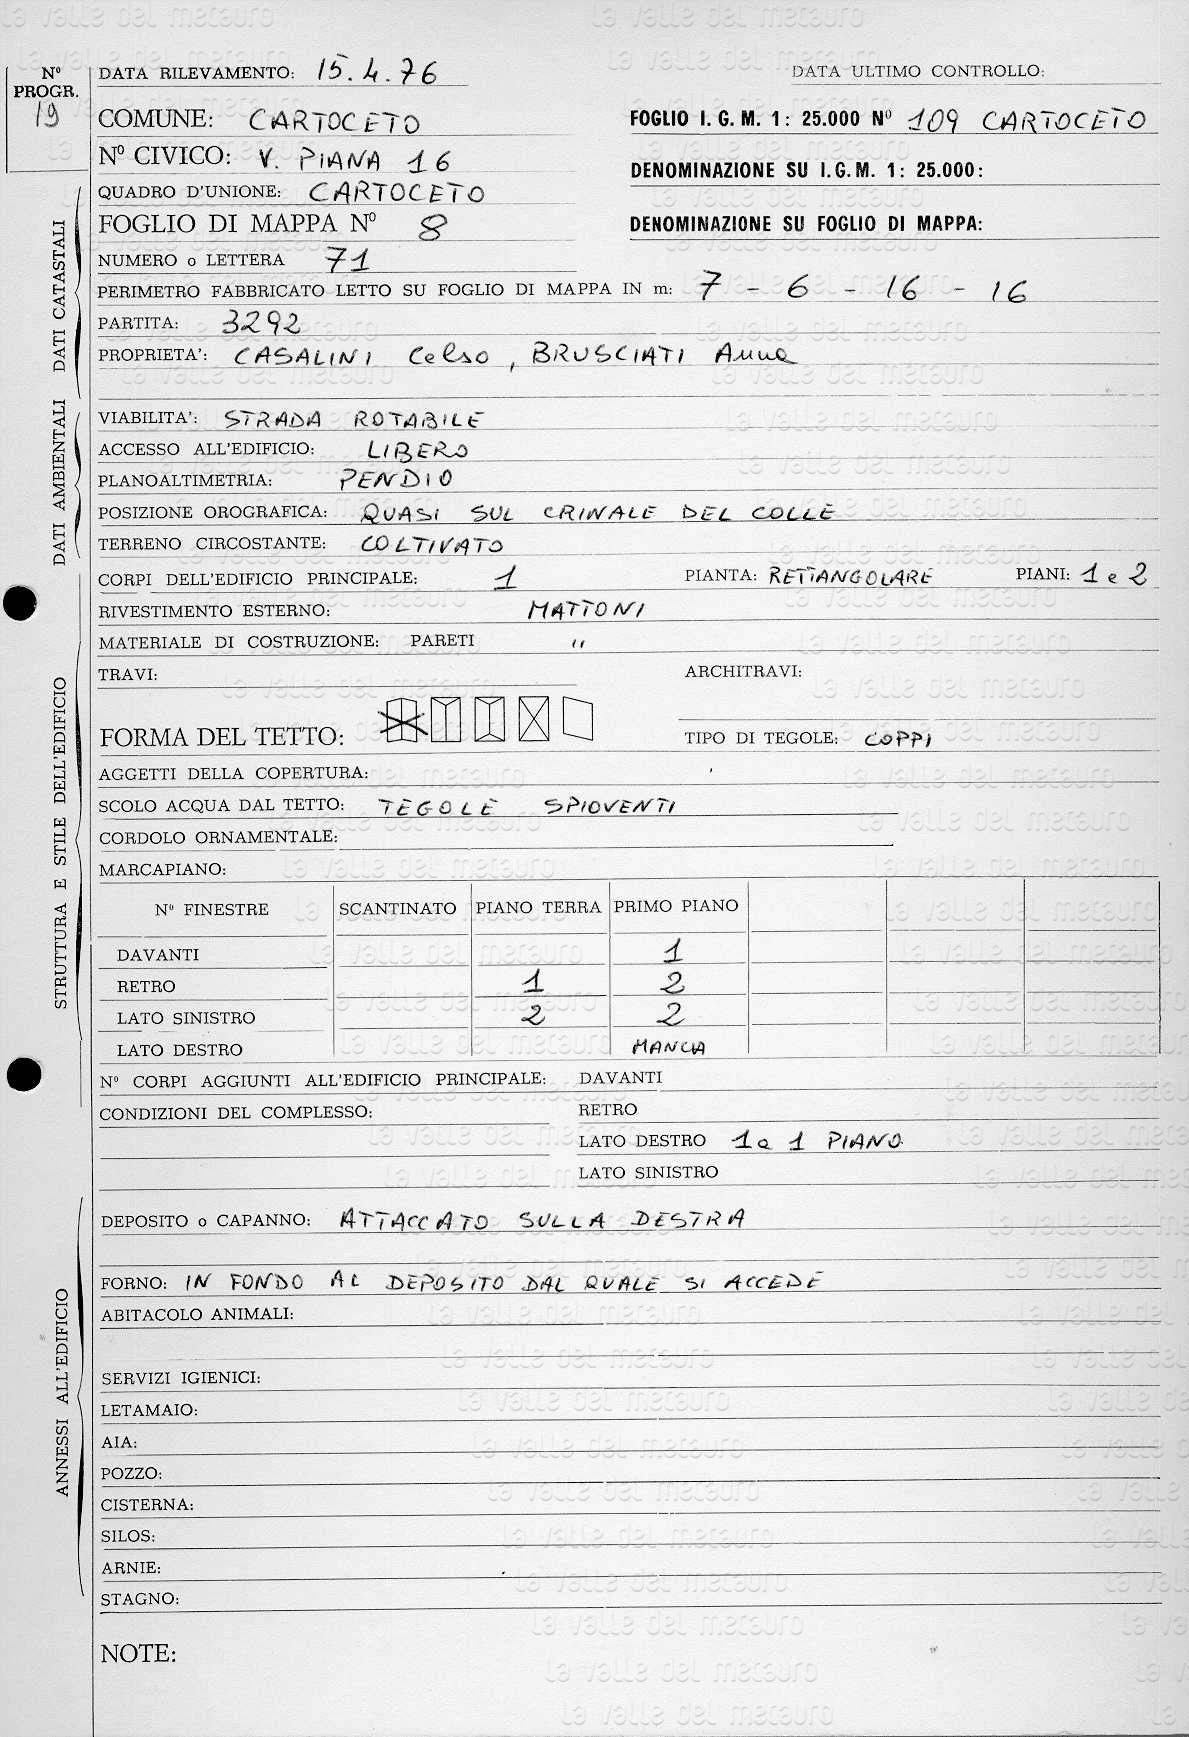 Nº PROGR. 19
DATA RILEVAMENTO: 15.4.76
DATA ULTIMO CONTROLLO:
COMUNE: CARTOCETO
FOGLIO I.G.M. 1: 25.000 Nº 109 CARTOCETO
Nº CIVICO: V. PIANA 16
DENOMINAZIONE SU I.G.M. 1: 25.000:
QUADRO D'UNIONE: CARTOCETO
FOGLIO DI MAPPA Nº 8
DENOMINAZIONE SU FOGLIO DI MAPPA:
NUMERO o LETTERA 71
PERIMETRO FABBRICATO LETTO SU FOGLIO DI MAPPA IN m: 7 - 6 - 16 - 16
PARTITA: 3292
PROPRIETA': CASALINI Celso, BRUSCIATI Anna
DATI CATASTALI
VIABILITA': STRADA ROTABILE
ACCESSO ALL'EDIFICIO: LIBERO
PLANOALTIMETRIA: PENDIO
POSIZIONE OROGRAFICA: QUASI SUL CRINALE DEL COLLE
TERRENO CIRCOSTANTE: COLTIVATO
DATI AMBIENTALI
CORPI DELL'EDIFICIO PRINCIPALE: 1 PIANTA: RETTANGOLARE PIANI: 1 e 2
RIVESTIMENTO ESTERNO: MATTONI
MATERIALE DI COSTRUZIONE: PARETI "
TRAVI: ARCHITRAVI:
FORMA DEL TETTO: TIPO DI TEGOLE: COPPI
AGGETTI DELLA COPERTURA:
SCOLO ACQUA DAL TETTO: TEGOLE SPIOVENTI
CORDOLO ORNAMENTALE:
MARCAPIANO:
Nº FINESTRE SCANTINATO PIANO TERRA PRIMO PIANO
DAVANTI 1
RETRO 1 2
LATO SINISTRO 2 2
LATO DESTRO MANCA
STRUTTURA E STILE DELL'EDIFICIO
Nº CORPI AGGIUNTI ALL'EDIFICIO PRINCIPALE: DAVANTI
CONDIZIONI DEL COMPLESSO: RETRO
LATO DESTRO 1 a 1 PIANO
LATO SINISTRO
DEPOSITO o CAPANNO: ATTACCATO SULLA DESTRA
FORNO: IN FONDO AL DEPOSITO DAL QUALE SI ACCEDE
ABITACOLO ANIMALI:
SERVIZI IGIENICI:
LETAMAIO:
AIA:
POZZO:
CISTERNA:
SILOS:
ARNIE:
STAGNO:
ANNESSI ALL'EDIFICIO
NOTE:
la valle del metauro